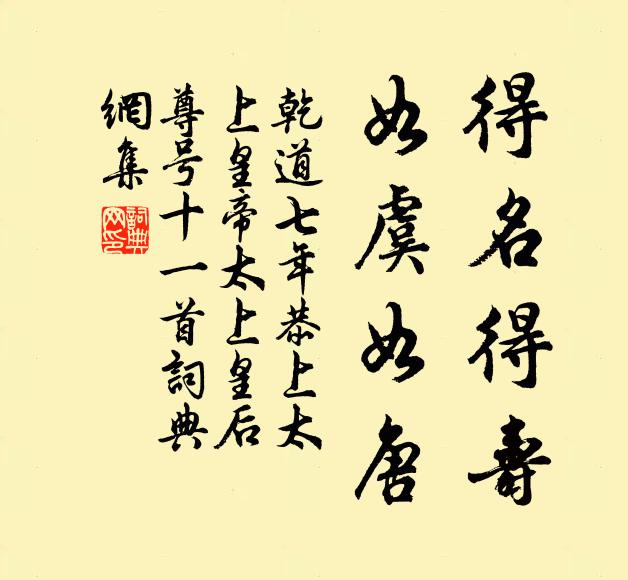 得名得壽
如虞如唐
乾道七年恭上太
上皇帝太上皇后
尊号十一首詞典
網集
詞典網印